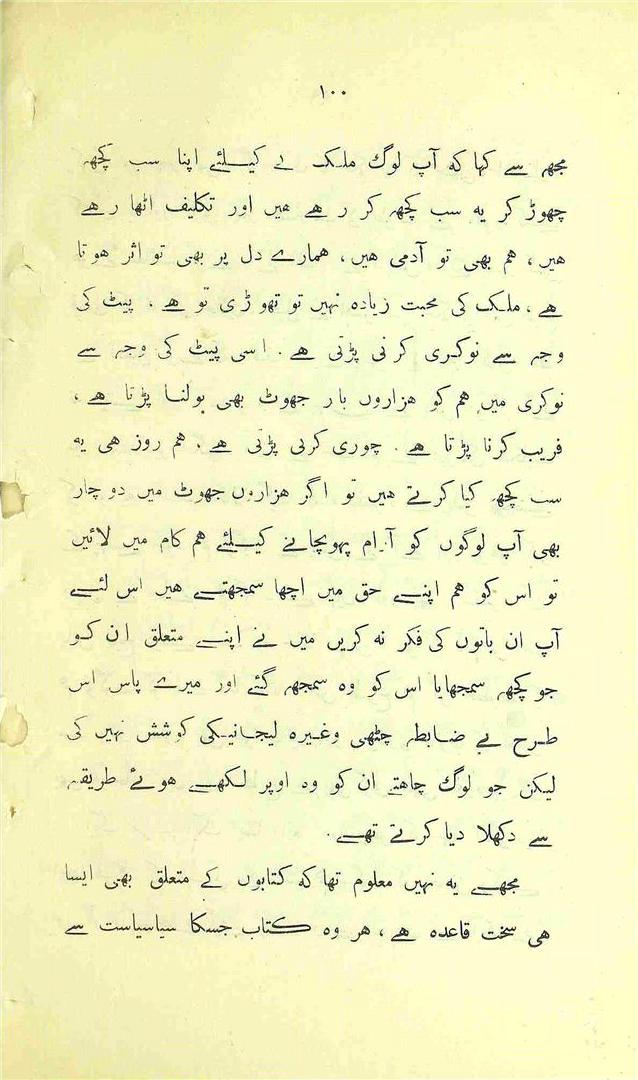 ۱۰۰
مجھہ سے کہا کہ آپ لوگ ملک کے کیلئے اپنا سب کچھہ
چھوڑ کر یہ سب کچھہ کر رھے ھیں اور تکلیف اٹھا رھے
ھیں، ھم بھی تو آدمی ھیں، ھمارے دل پر بھی تو اثر ھوتا
ھے، ملک کی محبت زیادہ نہیں تو تھوڑی تو ھے، پیٹ کی
وجہ سے نوکری کرنی پڑتی ھے۔ اسی پیٹ کی وجہ سے
نوکری میں ھم کو ھزاروں بار جھوٹ بھی بولنا پڑتا ھے،
فریب کرنا پڑتا ھے۔ چوری کرنی پڑتی ھے، ھم روز ھی یہ
سب کچھہ کیا کرتے ھیں تو اگر ھزاروں جھوٹ میں دو چار
بھی آپ لوگوں کو آرام پہونچانے کیلئے ھم کام میں لائیں
تو اس کو ھم اپنے حق میں اچھا سمجھتے ھیں اس لئے
آپ ان باتوں کی فکر نہ کریں میں نے اپنے متعلق ان کو
جو کچھہ سمجھایا اس کو وہ سمجھہ گئے اور میرے پاس اس
طرح بے ضابطہ چٹھی وغیرہ لیجانیکی کوشش نہیں کی
لیکن جو لوگ چاھتے ان کو وہ اوپر لکھے ھوئے طریقہ
سے دکھلا دیا کرتے تھے۔
مجھے یہ نہیں معلوم تھا کہ کتابوں کے متعلق بھی ایسا
ھی سخت قاعدہ ھے، ھر وہ کتاب جسکا سیاسیاست سے